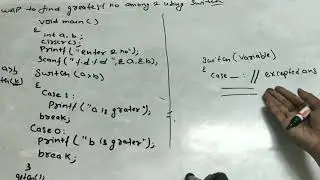 WAP to find greatest no among 2 using switch
void main()
{
int a, b;
clrscr();
Printf("enter 2 no");
Scanf("%d %d", &a, &b);
a>b
Switch (a>b)
{
Case 1:
Printf("a is grater");
break;
Case 0:
Printf("b is grater");
break;
}
Switch (variable)
{
Case _ : // excepted ans